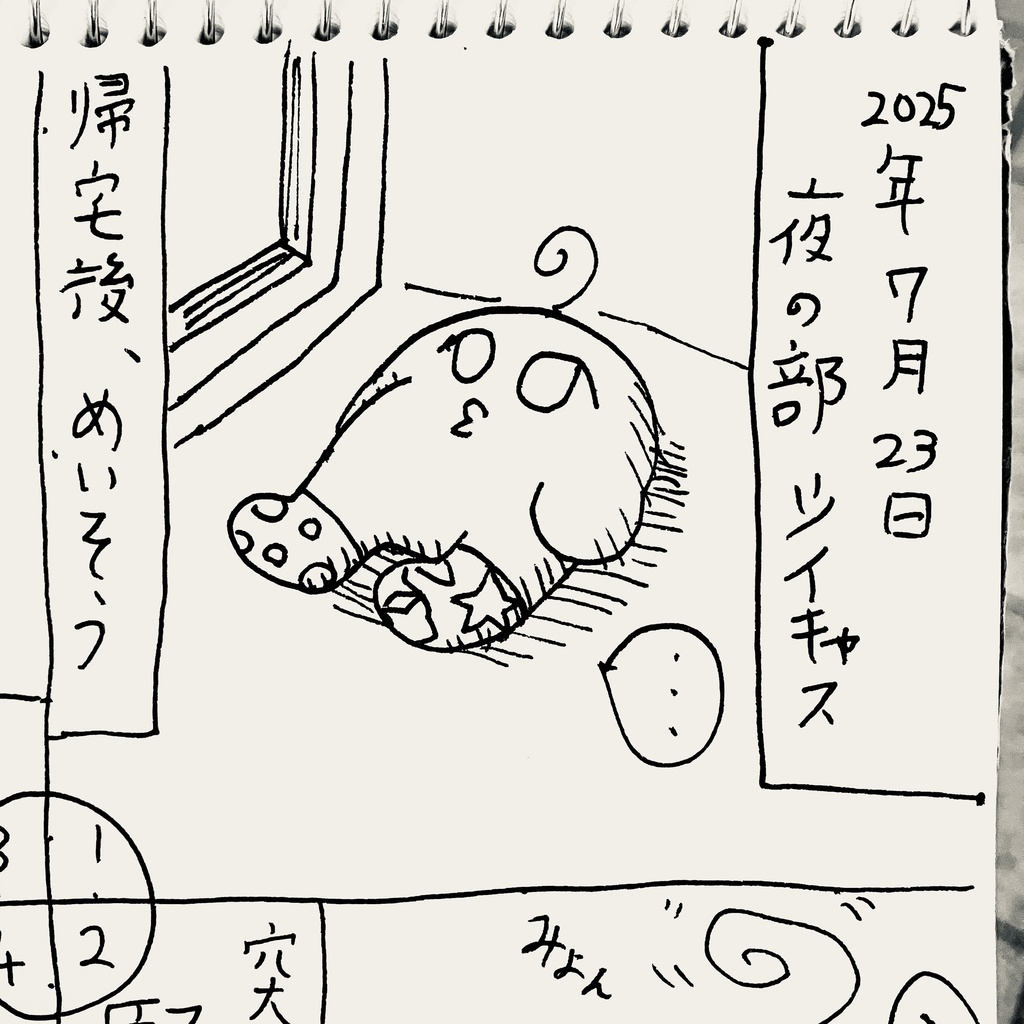 2025年7月23日
夜の部 ツイキャス
・・・
帰宅後、めいそう
1
2
3
4
みょん